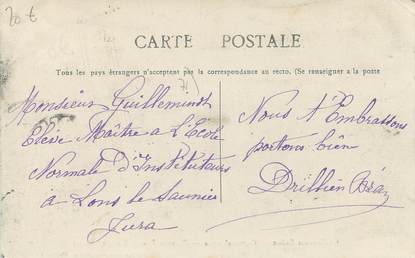 20 €
CARTE POSTALE
Tous les pays étrangers n'acceptent pas la correspondance au recto. (Se renseigner a la poste
Monsieur Guilleminot
Elève Maître a L'Ecole
Normale d'Instituteurs
a Lons le Saunier
Jura
Nous t'Embrassons
portons bien